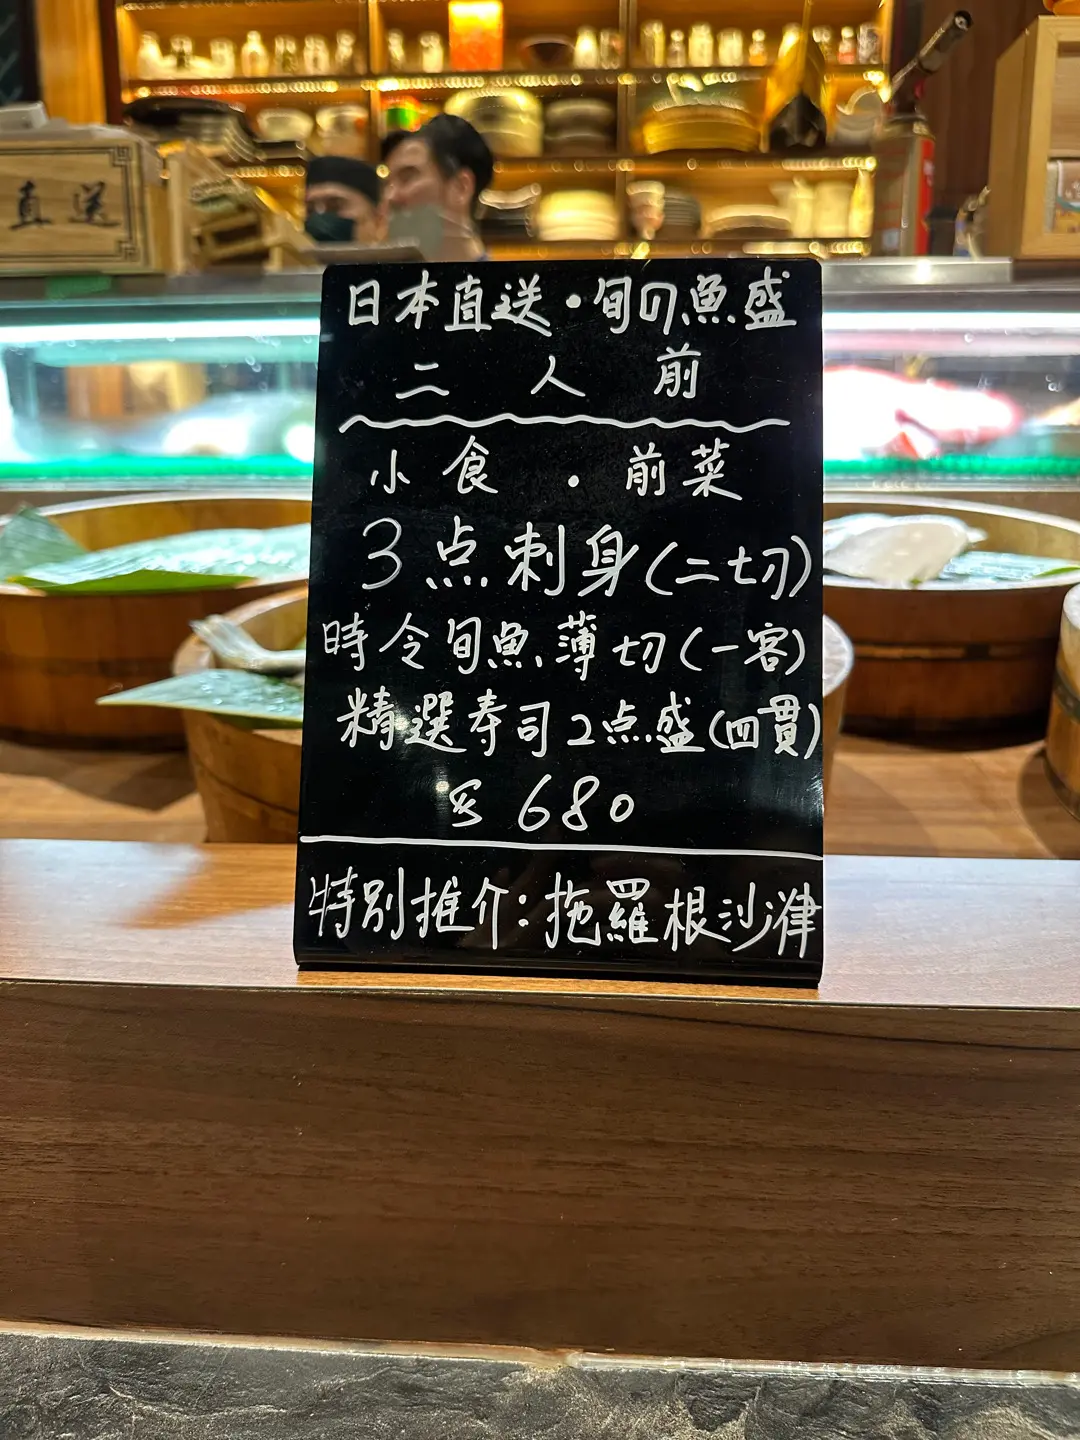 直送
日本直送・旬の魚盛
二人前
小食・前菜
3点刺身(二切)
時令旬魚薄切(一客)
精選寿司2点盛(四貫)
680
特別推介:拖羅根沙津